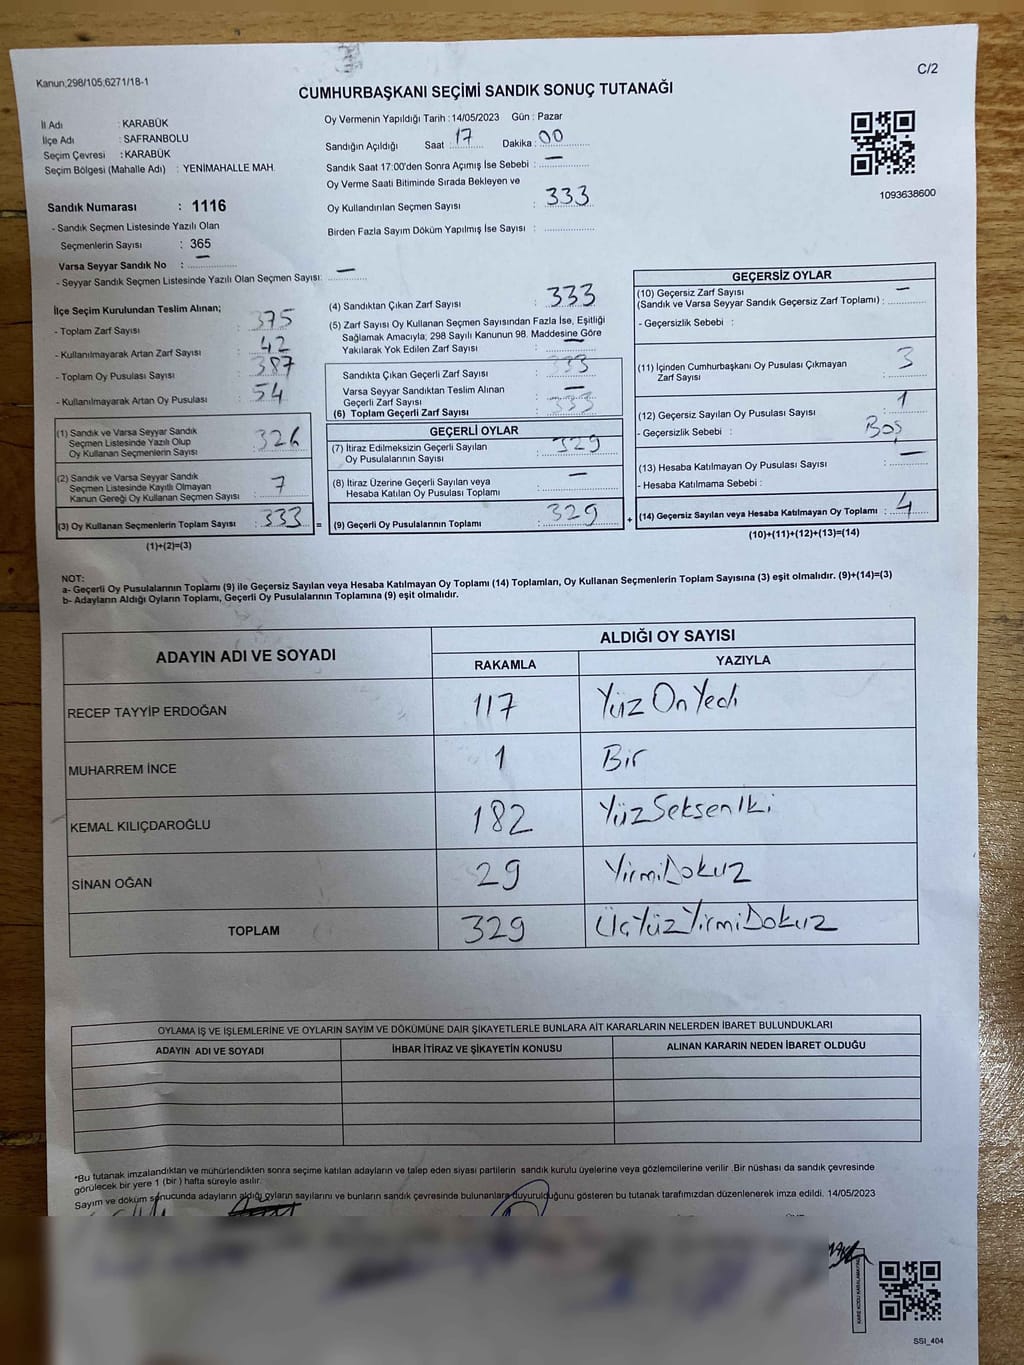 Kanun;298/105,6271/18-1
C/2
CUMHURBAŞKANI SEÇİMİ SANDIK SONUÇ TUTANAĞI
İl Adı : KARABÜK
İlçe Adı : SAFRANBOLU
Seçim Çevresi : KARABÜK
Seçim Bölgesi (Mahalle Adı) : YENİMAHALLE MAH.
Sandık Numarası : 1116
- Sandık Seçmen Listesinde Yazılı Olan
Seçmenlerin Sayısı : 365
Varsa Seyyar Sandık No : —
- Seyyar Sandık Seçmen Listesinde Yazılı Olan Seçmen Sayısı: —
Oy Vermenin Yapıldığı Tarih : 14/05/2023 Gün : Pazar
Sandığın Açıldığı Saat : 17 Dakika : 00
Sandık Saat 17:00'den Sonra Açımış İse Sebebi : —
Oy Verme Saati Bitiminde Sırada Bekleyen ve
Oy Kullandırılan Seçmen Sayısı : 333
Birden Fazla Sayım Döküm Yapılmış İse Sayısı :
1093638600
İlçe Seçim Kurulundan Teslim Alınan;
- Toplam Zarf Sayısı : 375
- Kullanılmayarak Artan Zarf Sayısı : 42
- Toplam Oy Pusulası Sayısı : 387
- Kullanılmayarak Artan Oy Pusulası : 54
(1) Sandık ve Varsa Seyyar Sandık
Seçmen Listesinde Yazılı Olup
Oy Kullanan Seçmenlerin Sayısı : 326
(2) Sandık ve Varsa Seyyar Sandık
Seçmen Listesinde Kayıtlı Olmayan
Kanun Gereği Oy Kullanan Seçmen Sayısı : 7
(3) Oy Kullanan Seçmenlerin Toplam Sayısı : 333 =
(1)+(2)=(3)
(4) Sandıktan Çıkan Zarf Sayısı : 333
(5) Zarf Sayısı Oy Kullanan Seçmen Sayısından Fazla İse, Eşitliği
Sağlamak Amacıyla; 298 Sayılı Kanunun 98. Maddesine Göre
Yakılarak Yok Edilen Zarf Sayısı : —
Sandıkta Çıkan Geçerli Zarf Sayısı : 333
Varsa Seyyar Sandıktan Teslim Alınan
Geçerli Zarf Sayısı : —
(6) Toplam Geçerli Zarf Sayısı : 333
GEÇERLİ OYLAR
(7) İtiraz Edilmeksizin Geçerli Sayılan
Oy Pusulalarının Sayısı : 329
(8) İtiraz Üzerine Geçerli Sayılan veya
Hesaba Katılan Oy Pusulası Toplamı : —
(9) Geçerli Oy Pusulalarının Toplamı : 329 +
GEÇERSİZ OYLAR
(10) Geçersiz Zarf Sayısı : —
(Sandık ve Varsa Seyyar Sandık Geçersiz Zarf Toplamı) :
- Geçersizlik Sebebi :
(11) İçinden Cumhurbaşkanı Oy Pusulası Çıkmayan
Zarf Sayısı : 3
(12) Geçersiz Sayılan Oy Pusulası Sayısı : 1
- Geçersizlik Sebebi : Boş
(13) Hesaba Katılmayan Oy Pusulası Sayısı : —
- Hesaba Katılmama Sebebi :
(14) Geçersiz Sayılan veya Hesaba Katılmayan Oy Toplamı : 4
(10)+(11)+(12)+(13)=(14)
NOT:
a- Geçerli Oy Pusulalarının Toplamı (9) ile Geçersiz Sayılan veya Hesaba Katılmayan Oy Toplamı (14) Toplamları, Oy Kullanan Seçmenlerin Toplam Sayısına (3) eşit olmalıdır. (9)+(14)=(3)
b- Adayların Aldığı Oyların Toplamı, Geçerli Oy Pusulalarının Toplamına (9) eşit olmalıdır.
ADAYIN ADI VE SOYADI
ALDIĞI OY SAYISI
RAKAMLA YAZIYLA
RECEP TAYYİP ERDOĞAN 117 Yüz On Yedi
MUHARREM İNCE 1 Bir
KEMAL KILIÇDAROĞLU 182 YüzSeksenİki
SİNAN OĞAN 29 YirmiDokuz
TOPLAM 329 ÜçYüzYirmiDokuz
OYLAMA İŞ VE İŞLEMLERİNE VE OYLARIN SAYIM VE DÖKÜMÜNE DAİR ŞİKAYETLERLE BUNLARA AİT KARARLARIN NELERDEN İBARET BULUNDUKLARI
ADAYIN ADI VE SOYADI İHBAR İTİRAZ VE ŞİKAYETİN KONUSU ALINAN KARARIN NEDEN İBARET OLDUĞU
*Bu tutanak imzalandıktan ve mühürlendikten sonra seçime katılan adayların ve talep eden siyasi partilerin sandık kurulu üyelerine veya gözlemcilerine verilir .Bir nüshası da sandık çevresinde
görülecek bir yere 1 (bir ) hafta süreyle asılır.
Sayım ve döküm sonucunda adayların aldığı oyların sayılarını ve bunların sandık çevresinde bulunanlara duyurulduğunu gösteren bu tutanak tarafımızdan düzenlenerek imza edildi. 14/05/2023
KARE KODU KARALAMAYINIZ
SSİ_404